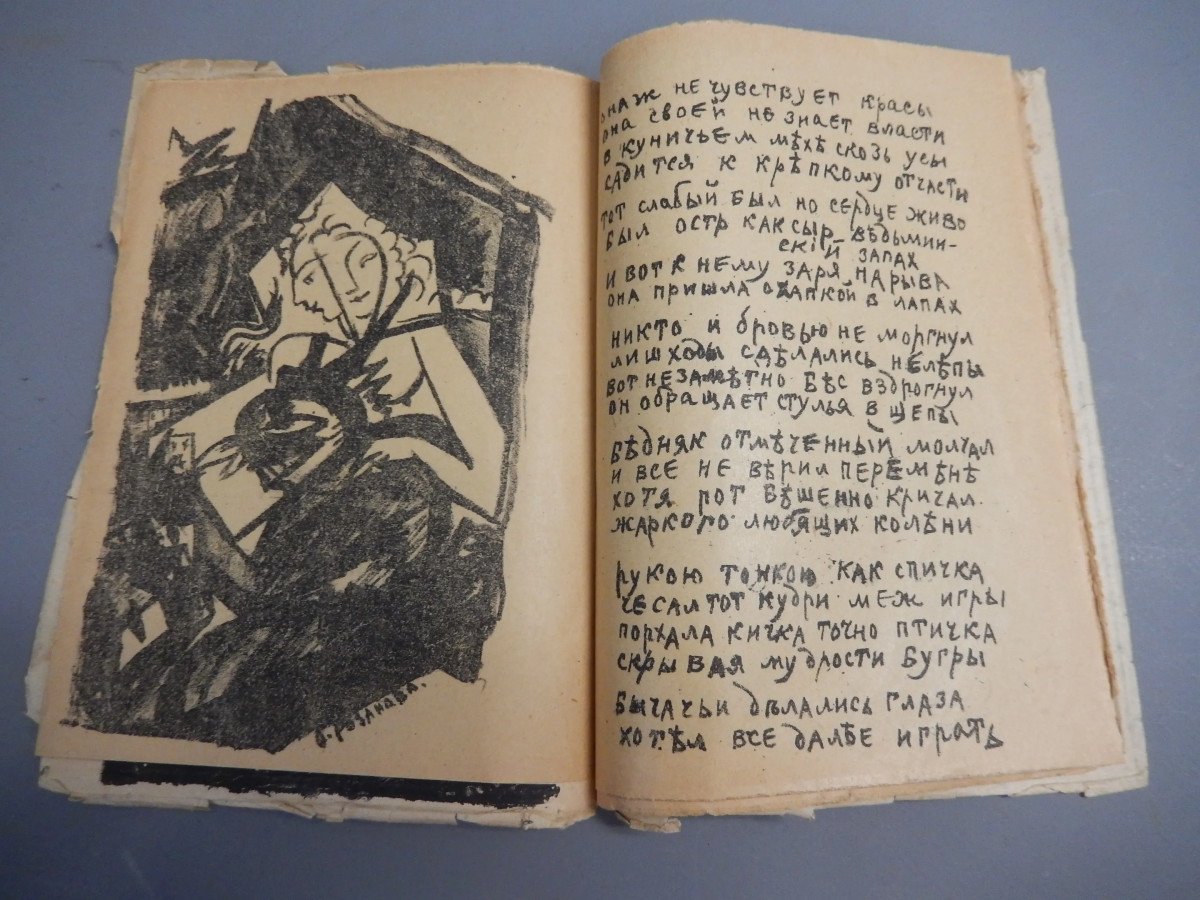 о.розанова.
она ж не чувствует красы
она своей не знает власти
в куничьем мѣхѣ скозь усы
садится к крѣпкому отчасти
тот слабый был но сердце живо
был остр как сыр ведьмин-
скій запах
и вот к нему заря нарыва
она пришла охапкой в лапах
никто и бровью не моргнул
лишь ходы сдѣлались нелѣпы
вот незамѣтно бѣс вздрогнул
он обращает стулья в щепы
бѣдняк отмѣченный молчал
и все не вѣрил перемѣнѣ
хотя рот бѣшенно кричал
жаркого любящих колѣни
рукою тонкою как спичка
чесал тот кудри меж игры
порхала кичка точно птичка
скрывая мудрости бугры
бычачьи дѣлались глаза
хотѣл все далѣе играть